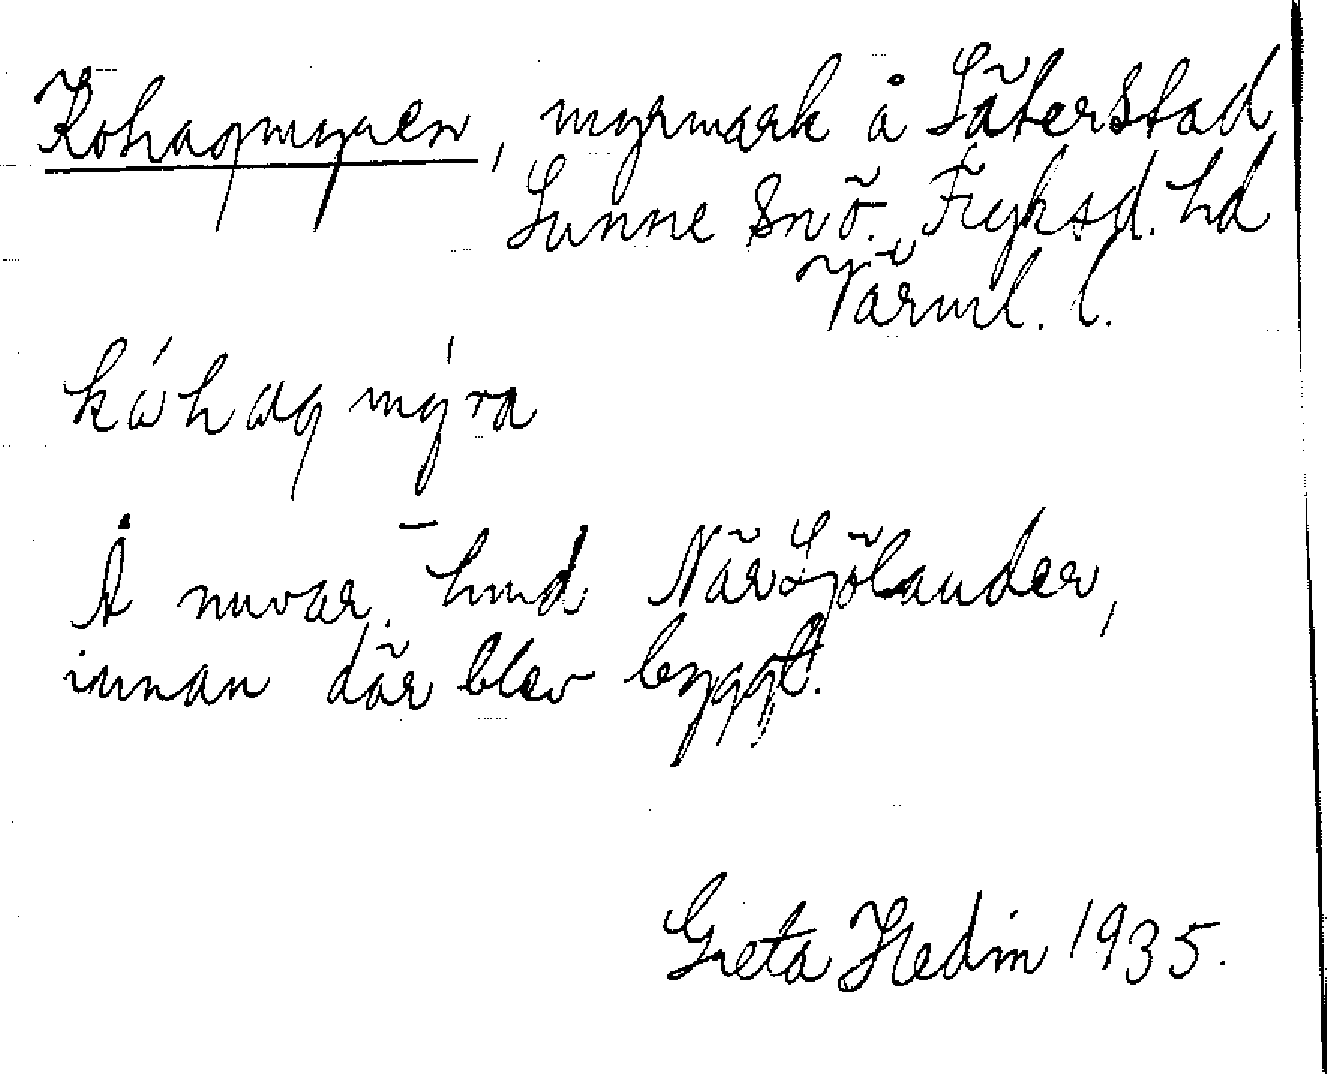 Kohagmyren, myrmark å Säterstad
Sunne Snö. Fryksd. hd
Värml. l.
kóhag mýra
Å nuvar. hmd När Sjölander,
innan där blev byggt.
Greta Hedin 1935.